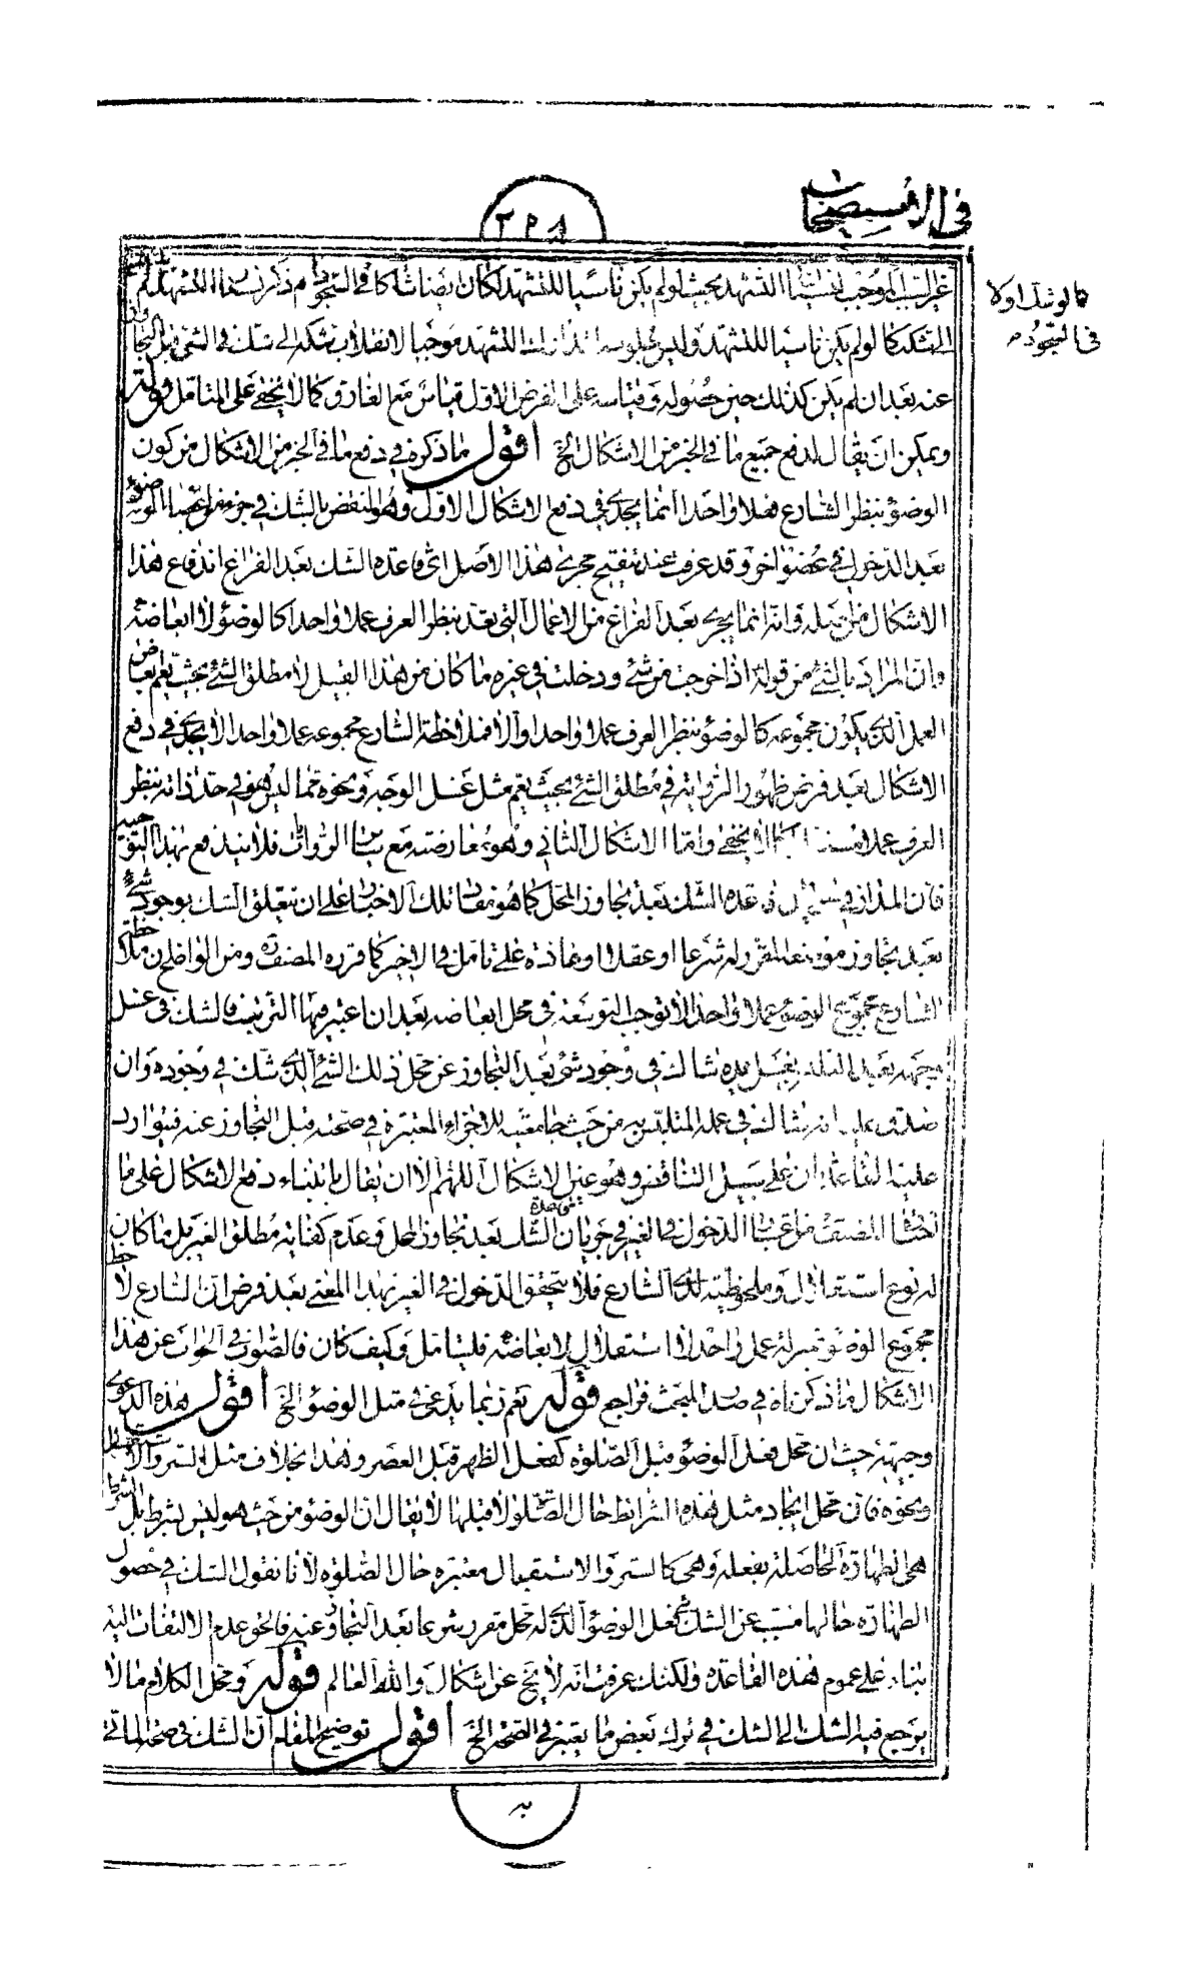 في الاستصحاب
٣٩٨
كما لو شك اولا
في السجود م
غير السبب الموجب لنسيان التشهد بحيث لو لم يكن ناسيا للتشهد لكان ايضا شاكا في السجود ثم ذكر نسيان التشهد
الشك كما لو لم يكن ناسيا للتشهد وليس جلوسه لتدارك التشهد موجبا لانقلاب شكه الى شك في الشئ قبل التجاوز
عنه بعد ان لم يكن كذلك حين حصوله وقياسه على الفرض الاول قياس مع الفارق كما لا يخفى على المتامل قوله
ويمكن ان يقال لدفع جميع ما في الخبر من الاشكال الخ أقول ما ذكره في دفع ما في الخبر من الاشكال من كون
الوضوء بنظر الشارع فعلا واحدا انما يجدى في دفع الاشكال الاول وهو النقض بالشك في جزء من اجزاء الوضوء
بعد الدخول في عضو اخر وقد عرفت عند تنقيح مجرى هذا الاصل اى قاعدة الشك بعد الفراغ اندفاع هذا
الاشكال من اصله وانه انما يجرى بعد الفراغ من الاعمال التى تعد بنظر العرف عملا واحدا كالوضوء لا ابعاضه
وان المراد بالشئ من قوله اذا خرجت من شئ ودخلت في غيره ما كان من هذا القبيل لا مطلق الشئ بحيث يعم ابعاض
العمل الذى يكون مجموعه كالوضوء بنظر العرف عملا واحدا والا فملاحظة الشارع مجموعه عملا واحدا لا يجدى في دفع
الاشكال بعد فرض ظهور الرواية في مطلق الشئ بحيث يعم مثل غسل الوجه ونحوه مما ليس هو في حد ذاته بنظر
العرف عملا مستقلا كما لا يخفى واما الاشكال الثانى وهو معارضته مع سائر الروايات فلا يندفع بهذا التوجيه
فان المدار في قاعدة الشك بعد تجاوز المحل كما هو مفاد تلك الاخبار على ان يتعلق الشك بوجود شئ
بعد تجاوز موضعه المقرر له شرعا او عقلا او عادة على تامل في الاخير كما قرره المصنف ره ومن الواضح ان ملاحظة
الشارع مجموع الوضوء عملا واحدا لا توجب التوسعة في محل ابعاضه بعد ان اعتبر فيها الترتيب فالشك في غسل
وجهه بعد التلبس بغسل يده شاك في وجود شئ بعد التجاوز عن محل ذلك الشئ الذى شك في وجوده وان
صدق عليه انه شاك في عمله المتلبس به من حيث جامعيته للاجزاء المعتبرة في صحته قبل التجاوز عنه فيتوارد
عليه القاعدتان على سبيل التناقض وهو عين الاشكال اللهم الا ان يقال بابتناء دفع الاشكال على ما
اختاره المصنف من اعتبار الدخول في الغير في جريان قاعدة الشك بعد تجاوز المحل وعدم كفاية مطلق الغير بل ما كان
له نوع استقلال وملحوظية لدى الشارع فلا يتحقق الدخول في الغير بهذا المعنى بعد فرض ان الشارع لاحظ
مجموع الوضوء بمنزلة عمل واحد لا استقلال لابعاضه فليتامل وكيف كان فالصواب في الجواب عن هذا
الاشكال ما ذكرناه في صدر المبحث فراجع قوله نعم ربما يدعى في مثل الوضوء الخ أقول هذه الدعوى
وجيهة حيث ان محل فعل الوضوء قبل الصلوة كفعل الظهر قبل العصر وهذا بخلاف مثل الستر والاستقبال
ونحوه فان محل ايجاد مثل هذه الشرائط حال الصلوة لا قبلها لا يقال ان الوضوء من حيث هو ليس بشرط بل الشرط
هى الطهارة الحاصلة بفعله وهى كالستر والاستقبال معتبرة حال الصلوة لانا نقول الشك في حصول
الطهارة حالها مسبب عن الشك في فعل الوضوء الذى له محل مقرر شرعا بعد التجاوز عنه فالنحو عدم الالتفات اليه
بناء على عموم هذه القاعدة ولكنك عرفت انه لا يخ عن اشكال والله العالم قوله ومحل الكلام ما لا
يرجع فيه الشك الى الشك في ترك بعض ما يعتبر في الصحة الخ أقول توضيح المقام ان الشك في صحة الماتى
به